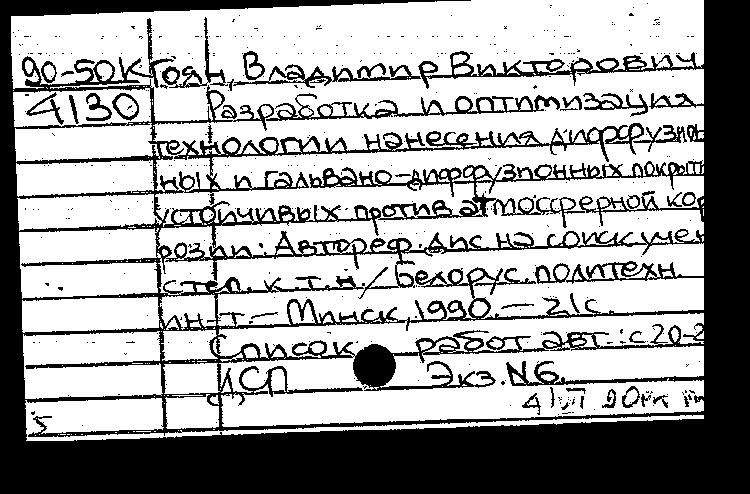 90-50К Гоян, Владимир Викторович.
4130 Разработка и оптимизация
технологии нанесения диффузион
ных и гальвано-диффузионных покрыт
устойчивых против атмосферной кор
розии: Автореф. дис на соиск учен
степ. к.т.н./ Белорус. политехн.
ин-т.- Минск, 1990.- 21с.
Список работ авт.: с 20-2
ДСП Экз. N6.
5